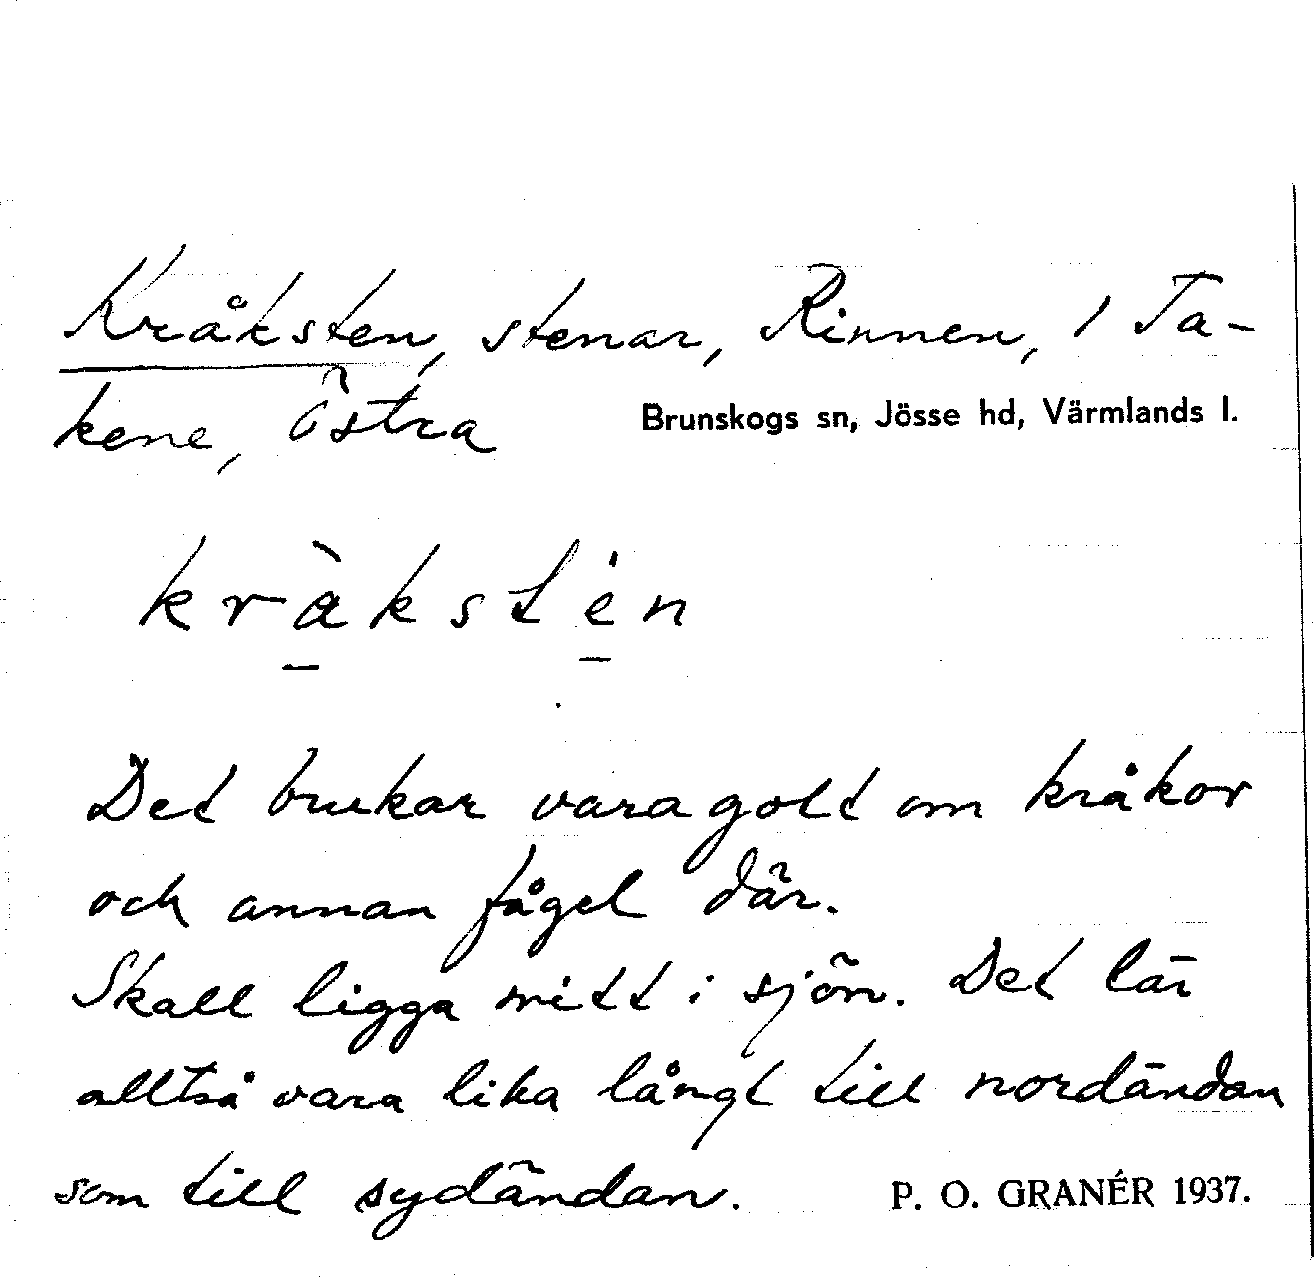 Kråksten, stenar, Rinnen, 1 Ta-
kene, Östra Brunskogs sn, Jösse hd, Värmlands l.
kràkstén
Det brukar vara gott om kråkor
och annan fågel där.
Skall ligga mitt i sjön. Det lär
alltså vara lika långt till nordändan
som till sydändan. P. O. GRANÉR 1937.